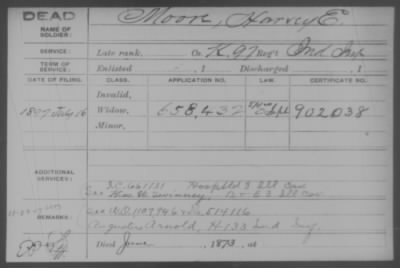 DEAD
Moore, Harvey E.
NAME OF SOLDIER:
SERVICE: Late rank, Co. K, 97 Reg't Ind Inf
TERM OF SERVICE: Enlisted , 1 Discharged , 1
DATE OF FILING. CLASS. APPLICATION NO. LAW. CERTIFICATE NO.
Invalid,
1897 July 16 Widow, 658,432 902038
Minor,
ADDITIONAL SERVICES:
S.C. 661131 Hosp Ill Cav
See B + E 3 Ill Cav
REMARKS: See W.O. 1107946 514116
Augustus Arnold, H-133 Ind Inf
Died June , 1873, at